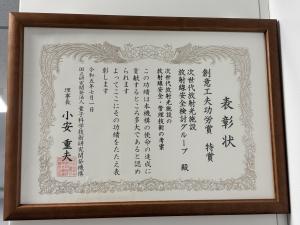 表彰状
創意工夫功労賞 特賞
次世代放射光施設
放射線安全検討グループ 殿
次世代放射光施設の
放射線安全・管理技術の考案
この功績は本機構の使命の達成に
貢献するところ多大であると認め
られます
よってここにその功績をたたえ表
彰します
令和五年七月一日
国立研究開発法人量子科学技術研究開発機構
理事長 小安 重夫